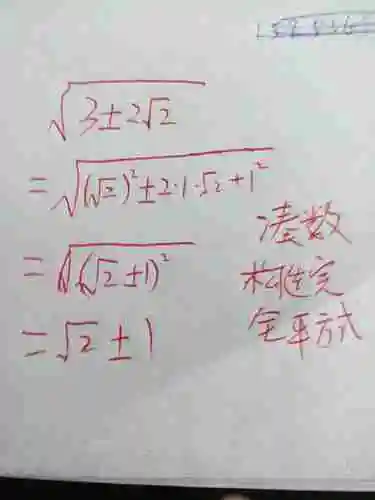 √(3±2√2)
=√((√2)²±2·1·√2+1²)
=√((√2±1)²)
=√2±1
凑数
构造完
全平方式